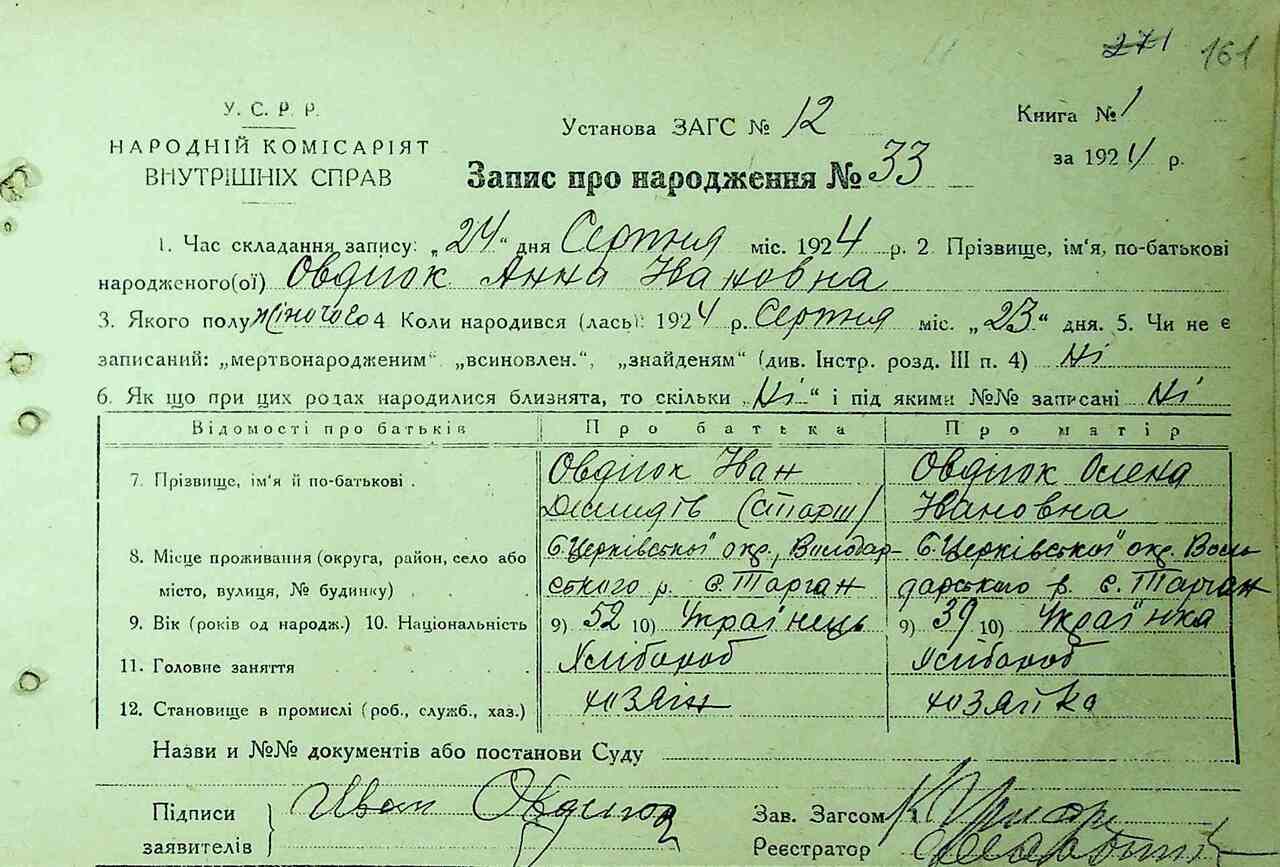 271 161
У. С. Р. Р.
НАРОДНІЙ КОМІСАРІЯТ
ВНУТРІШНІХ СПРАВ
Установа ЗАГС № 12
Книга № 1
за 1924 р.
Запис про народження № 33
1. Час складання запису: „24“ дня Серпня міс. 1924 р. 2. Прізвище, ім'я, по-батькові
народженого(ої) Овдіюк Анна Івановна
3. Якого полу жіночого 4 Коли народився (лась): 1924 р. Серпня міс. „23“ дня. 5. Чи не є
записаний: „мертвонародженим“ „всиновлен.“, „знайденям“ (див. Інстр. розд. III п. 4) Ні
6. Як що при цих родах народилися близнята, то скільки „Ні“ і під якими №№ записані Ні
Відомості про батьків Про батька Про матір
7. Прізвище, ім'я й по-батькові . Овдіюк Іван Овдіюк Олена
(старш) Івановна
8. Місце проживання (округа, район, село або Б. Церківської окр., Володар- Б. Церківської окр. Воло
місто, вулиця, № будинку) . . . ського р. с. Тарган дарського р. с. Тарган
9. Вік (років од народж.) 10. Національність 9) 52 10) Украївець 9) 39 10) Українка
11. Головне заняття . . . . Хлібороб Хлібороб
12. Становище в промислі (роб., служб., хаз.) хозяін хозяйка
Назви и №№ документів або постанови Суду
Підписи Иван Зав. Загсом
заявителів Реєстратор